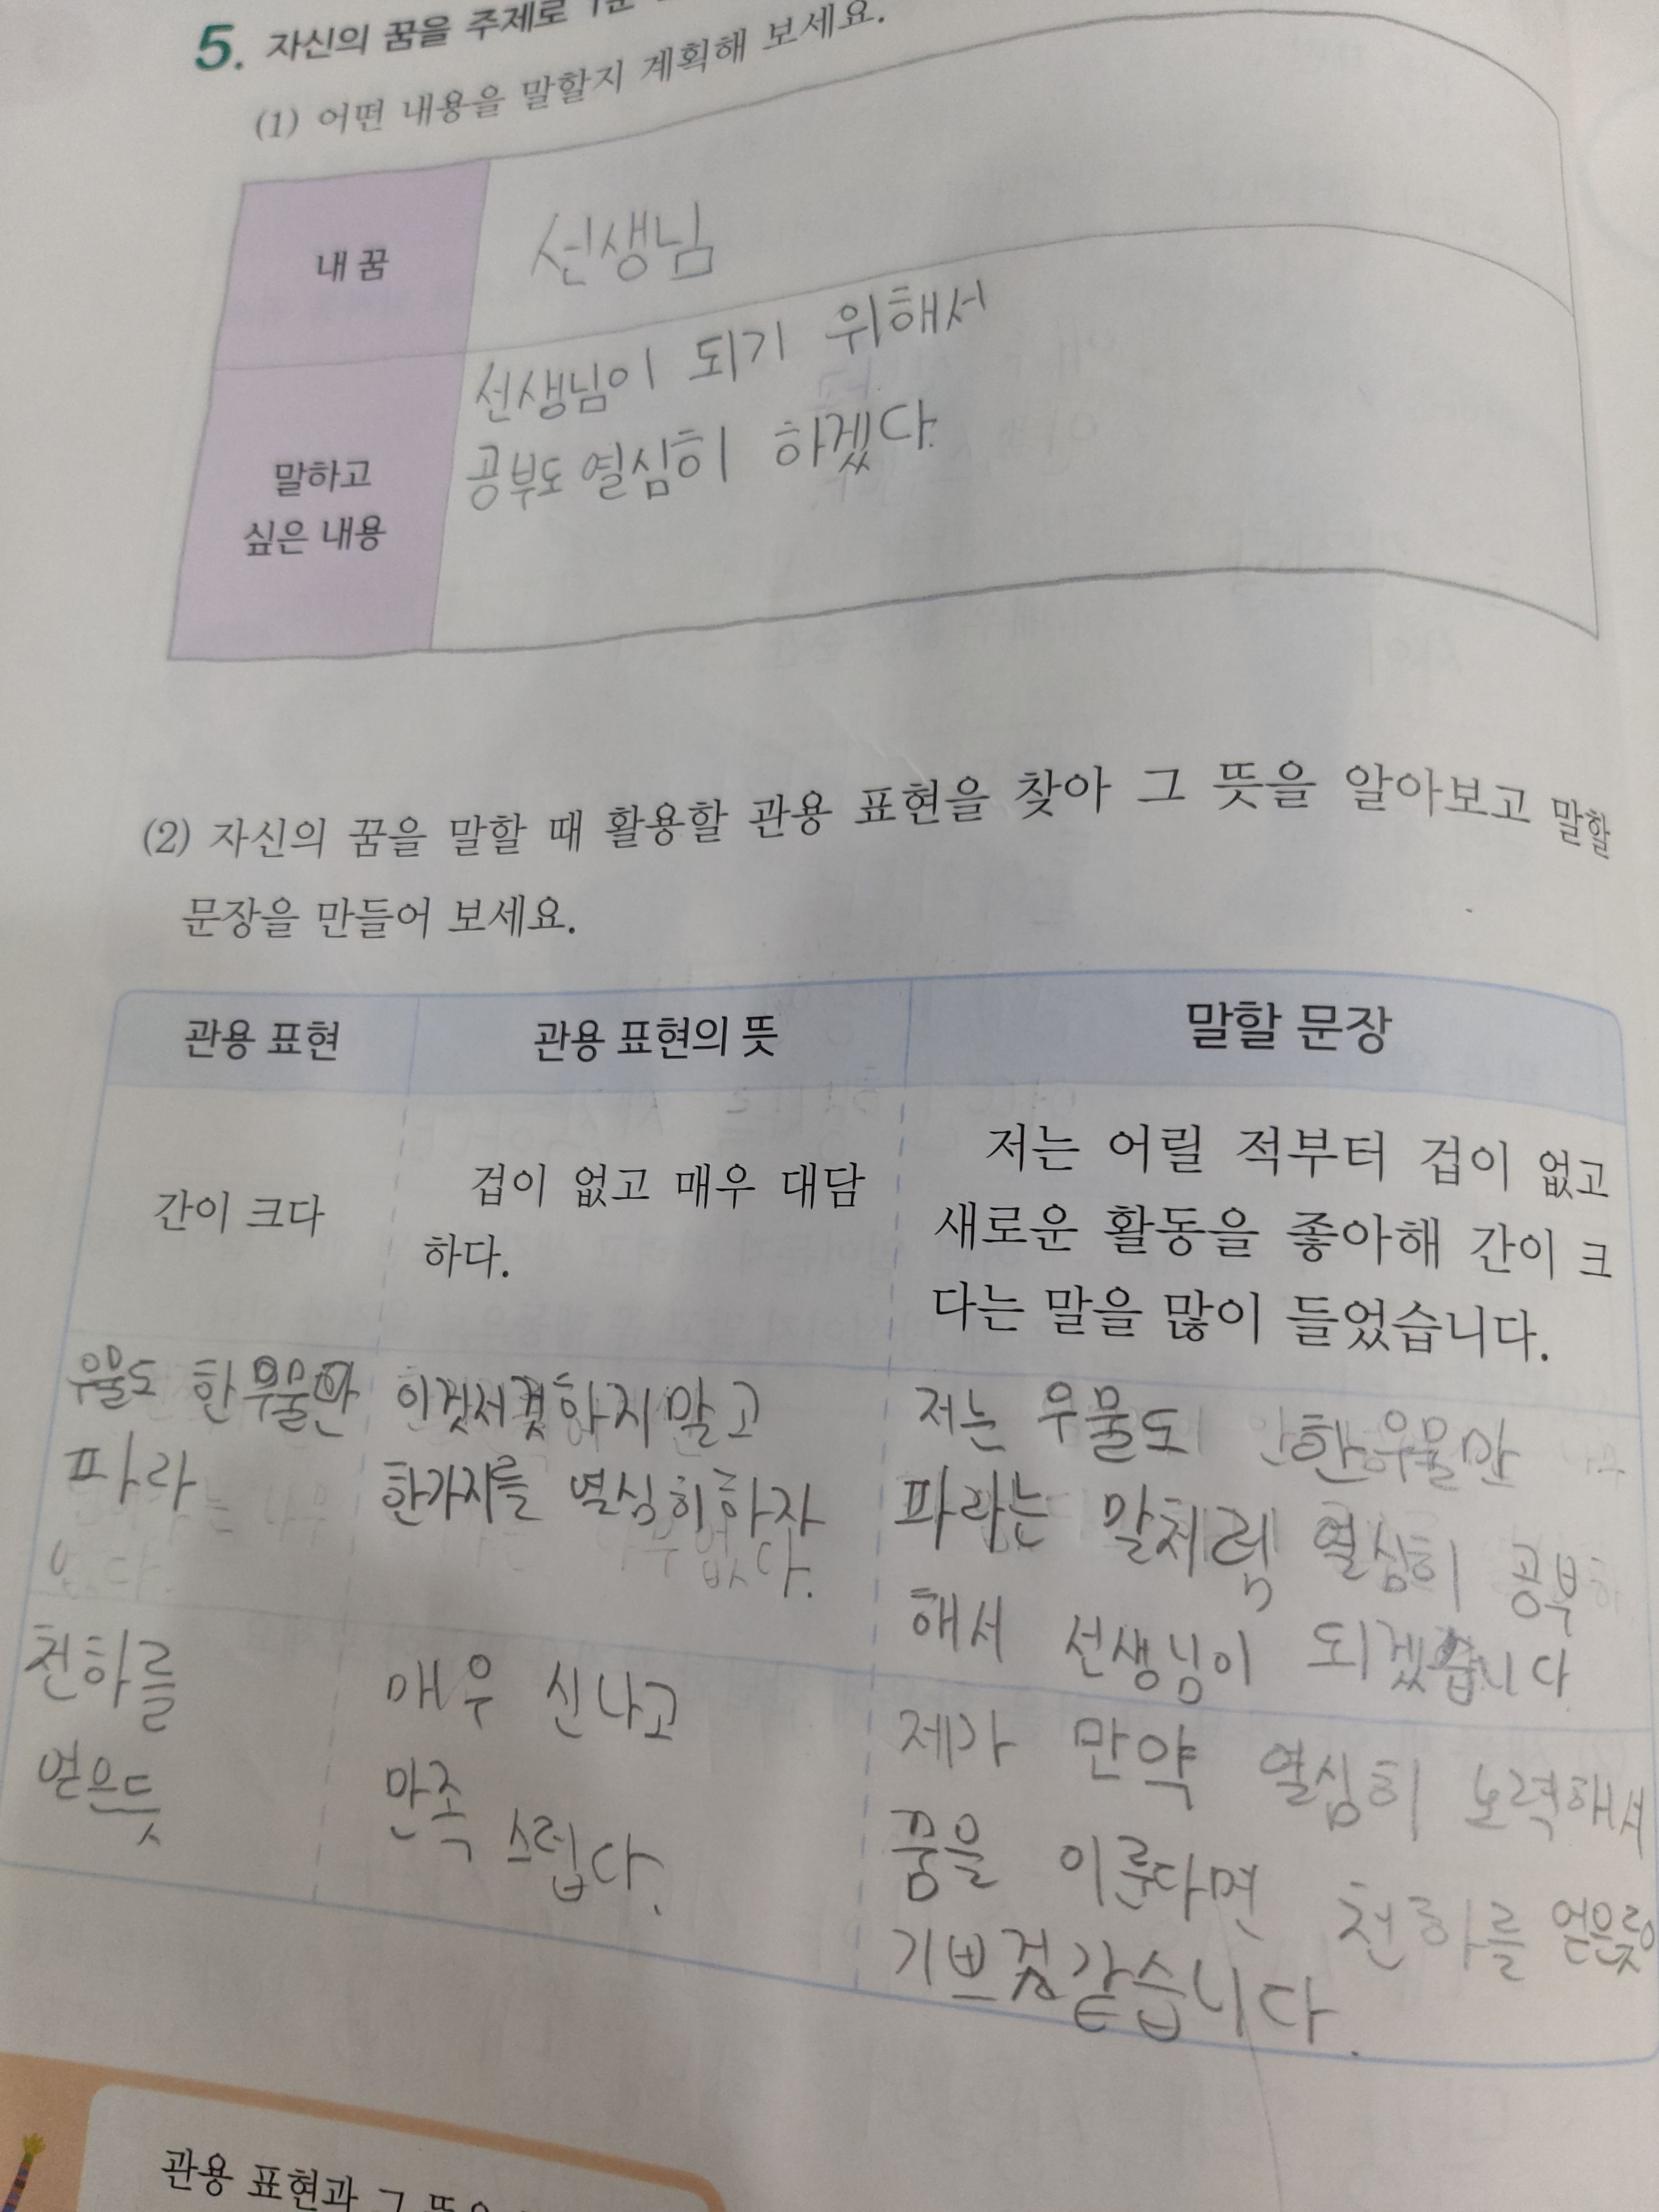 5. 자신의 꿈을 주제로
(1) 어떤 내용을 말할지 계획해 보세요.
내 꿈
선생님
말하고
싶은 내용
선생님이 되기 위해서
공부도 열심히 하겠다.
(2) 자신의 꿈을 말할 때 활용할 관용 표현을 찾아 그 뜻을 알아보고 말할
문장을 만들어 보세요.
관용 표현
관용 표현의 뜻
말할 문장
간이 크다
겁이 없고 매우 대담
하다.
저는 어릴 적부터 겁이 없고
새로운 활동을 좋아해 간이 크
다는 말을 많이 들었습니다.
우물도 한 우물만
파라
이것저것하지말고
한가지를 열심히하자
저는 우물도 한우물만
파라는 말처럼 열심히 공부
해서 선생님이 되겠습니다
천하를
얻은듯
매우 신나고
만족스럽다.
제가 만약 열심히 노력해서
꿈을 이룬다면 천하를 얻은듯
기쁘것같습니다.
관용 표현과 그 뜻을